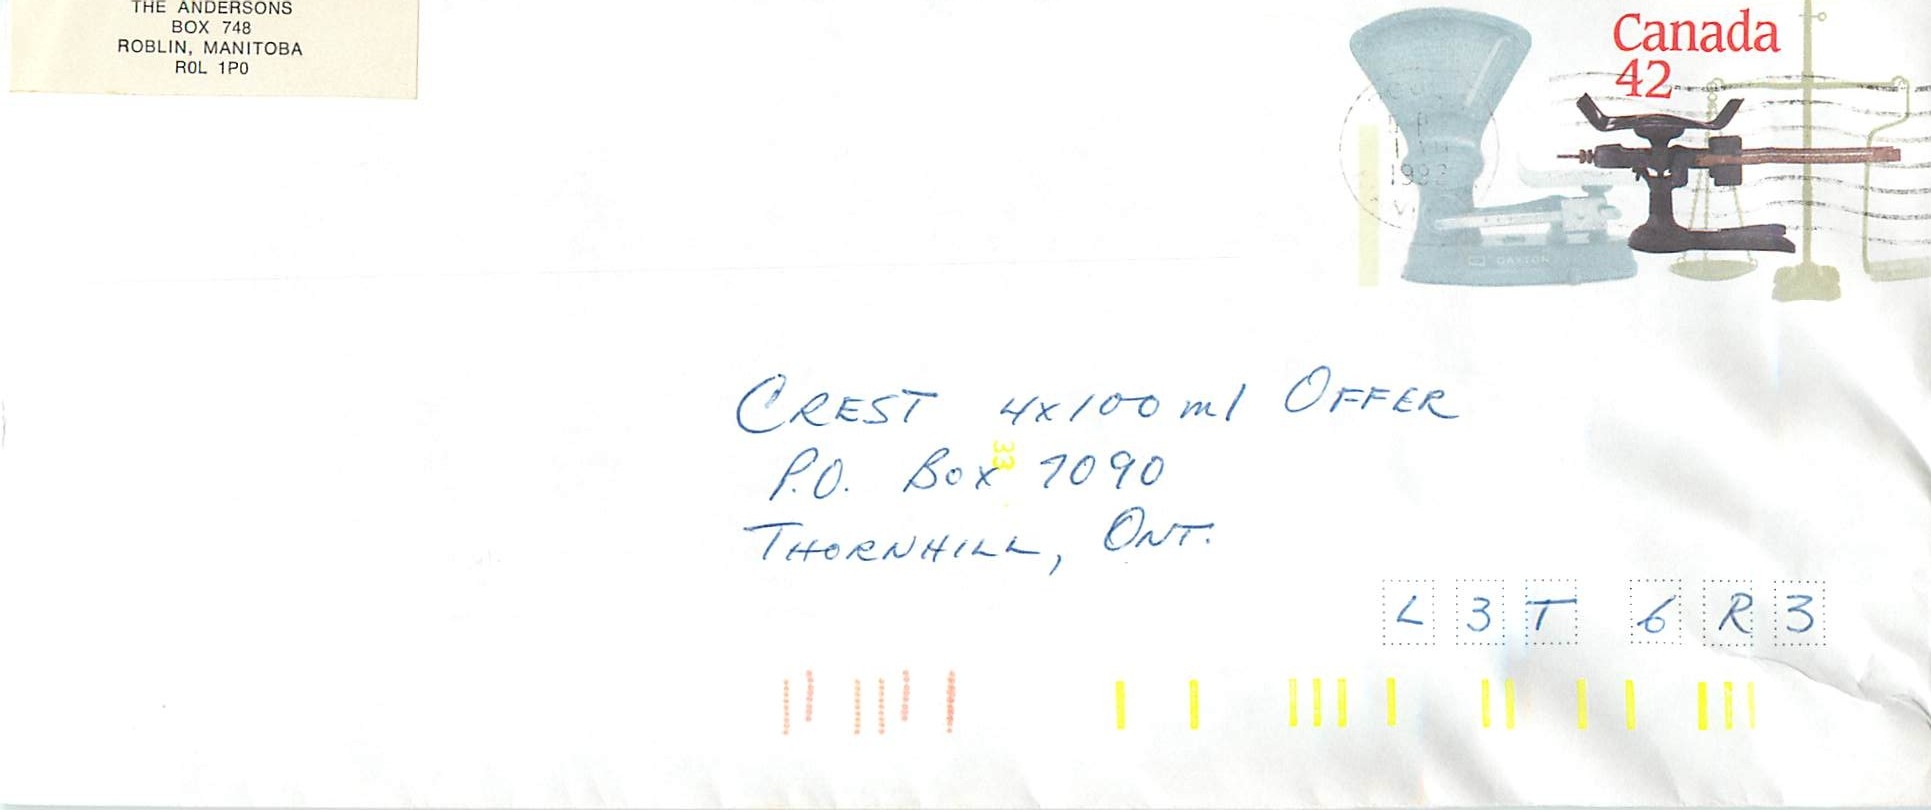 THE ANDERSONS
BOX 748
ROBLIN, MANITOBA
R0L 1P0
Canada
42
1992
CREST 4x100 ml OFFER
33
P.O. Box 7090
THORNHILL, ONT.
L 3 T 6 R 3